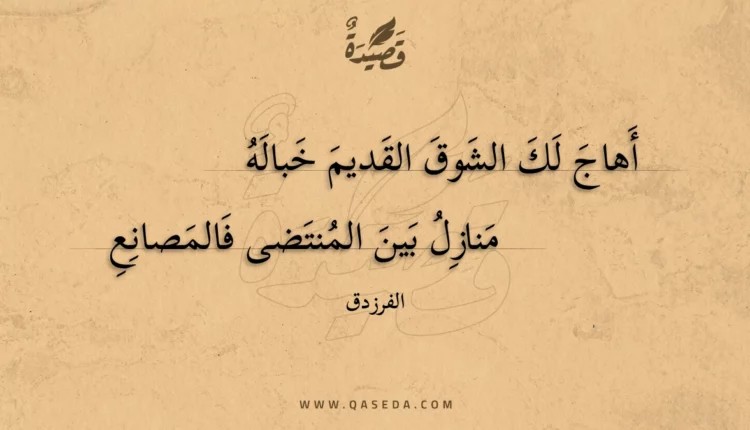 قَصِيْدَةٌ
أَهاجَ لَكَ الشَوقَ القَديمَ خَبالَهُ
مَنازِلُ بَينَ المُنتَضى فَالمَصانِعِ
الفرزدق
WWW.QASEDA.COM